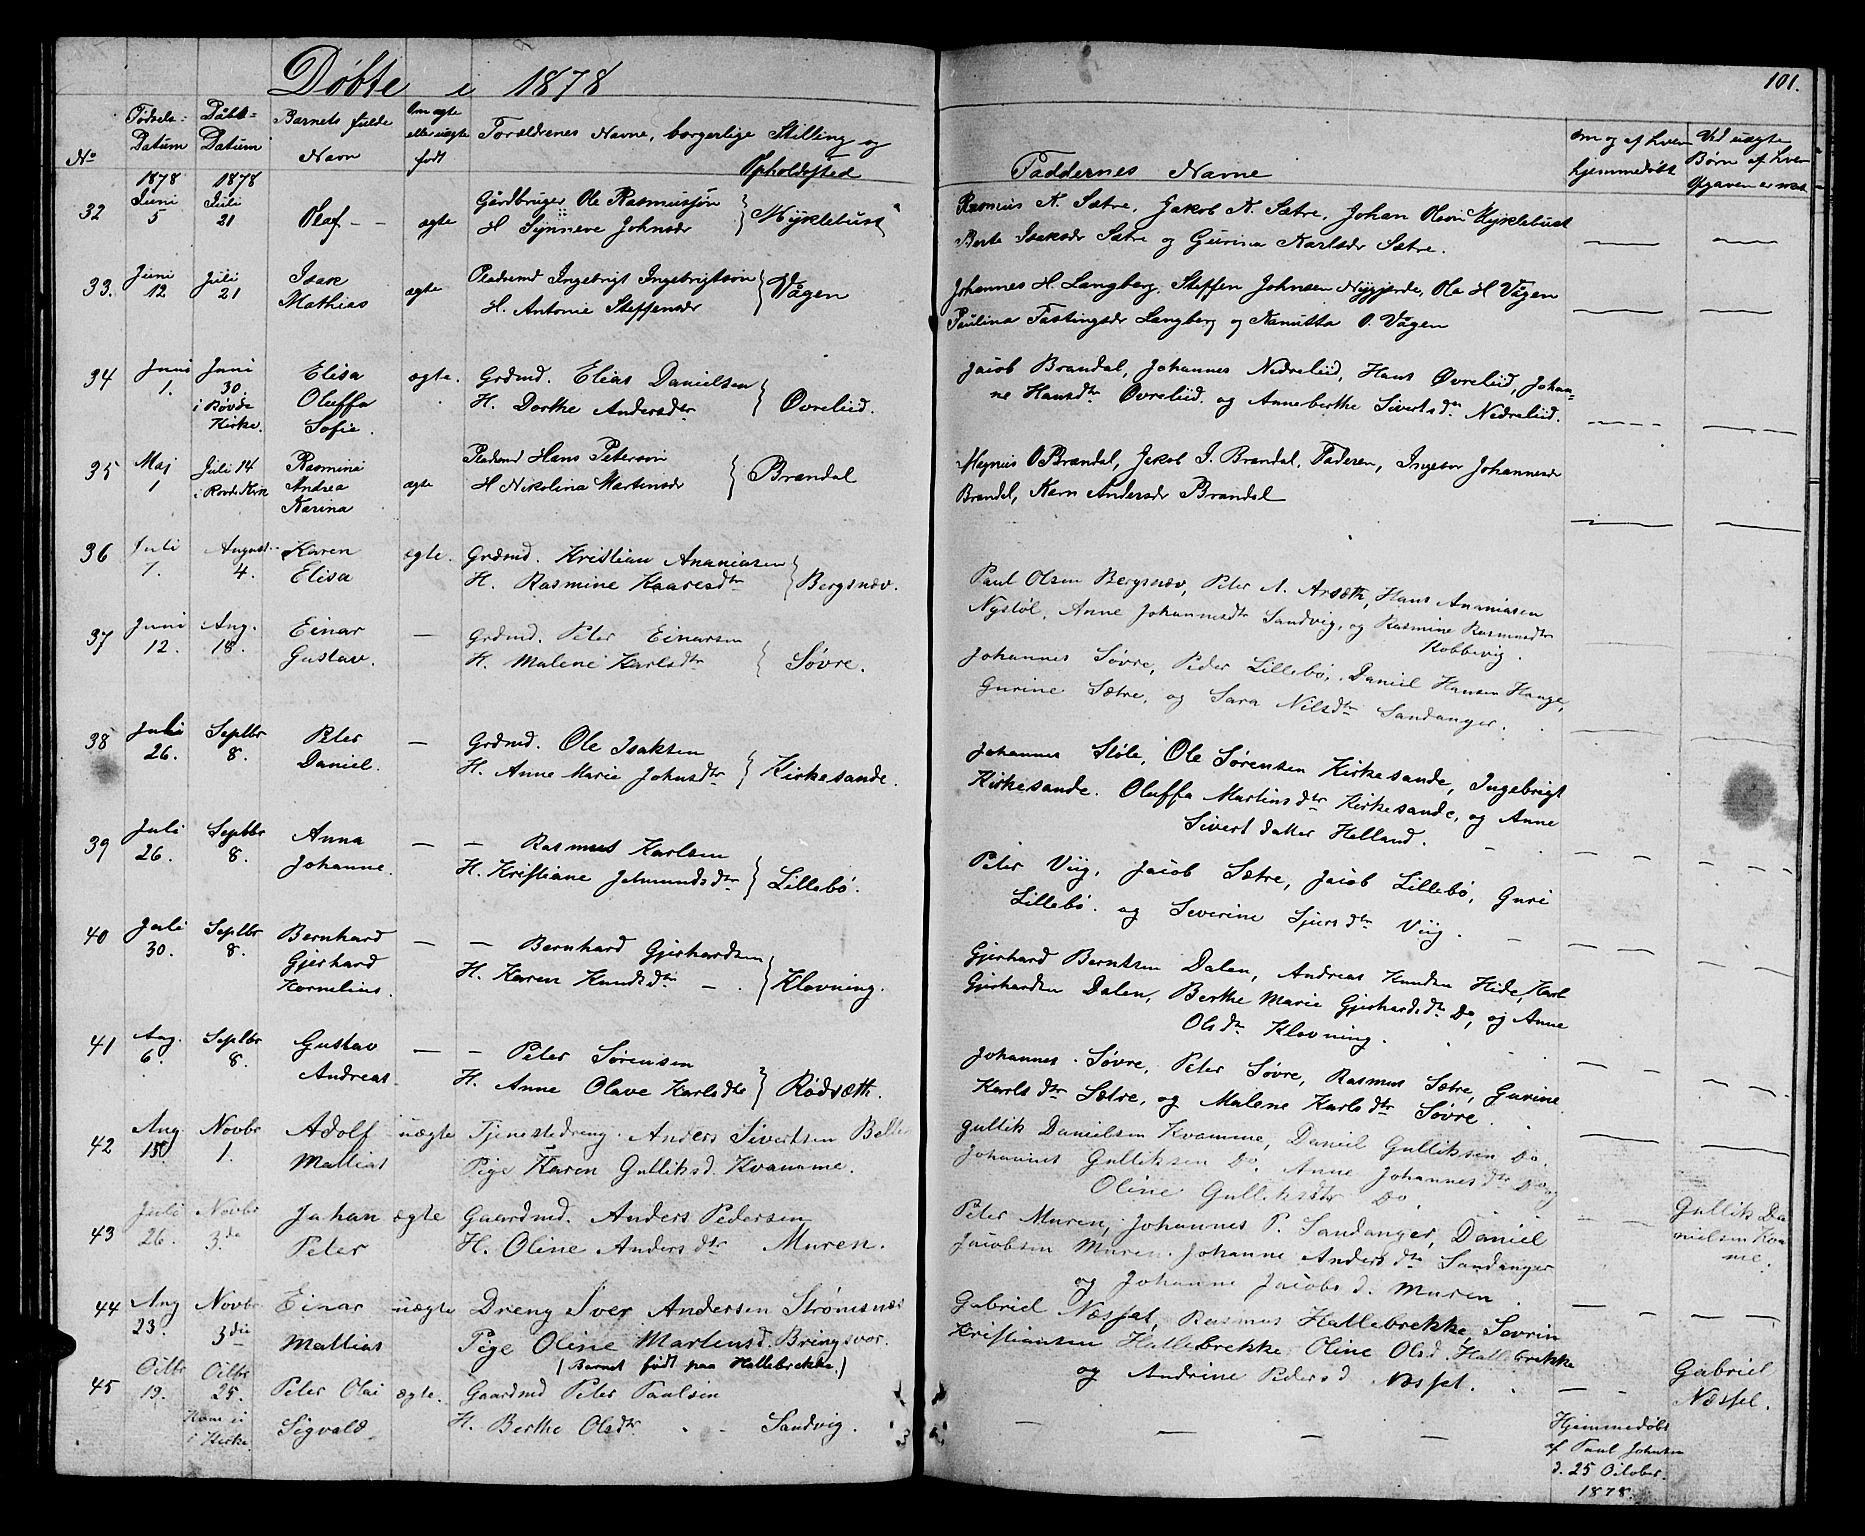 Døbte i 1878
101.
No
Fødsels- Datum
Døbte- Datum
Barnets fulde Navn
Om ægte eller uægte født
Forældrenes Navne, borgerlige Stilling og Opholdssted
Faddernes Navne
Om og af hvem hjemmedøbt
Ved uægte Børn af hvem
1878 1878
32 Juni 5 Juli 21 Olaf - ægte
Gårdbruger Ole Rasmusson
H Synneve Johnsdr } Myklebust
Rasmus K. Sætre, Jakob K. Sætre, Johan Olson Myklebust
Berte Isaksdr Sætre og Gurina Karlsdr Sætre.
33. Juni 12 Juli 21 Isak Mathias ægte
Pladsmd Ingebrigt Ingebrigtson
H. Antonie Steffensdr } Vågen
Johannes H. Langberg, Steffen Johnsen Nygjerde, Ole H Vågen
Paulina Fastingsdr Langberg og Nanutta O. Vågen
34 Juni 1. Juni 30. i Røvde Kirke. Elisa Oluffa Sofie. ægte.
Grdmd. Elias Danielsen
H. Dorthe Andersdtr } Øvreliid.
Jacob Brandal, Johannes Nedreliid, Hans Øvreliid, Johan=
ne Hansdtr Øvreliid. og Anneberthe Sivertsdtr Nedreliid.
35 Maj 1 Juli 14 Rasmine Andrea Karina ægte
Pladsmd Hans Peterson
H Nikolina Martensdr } Brandal
Magnus O Brandal, Jakob I. Brandal, Faderen, Ingebor Johannesdr
Brandal, Karn Andersdr Brandal
36 Juli 7. August 4. Karen Elisa ægte.
Grdmd. Kristian Ananiasen
H. Rasmine Kaaresdtr } Bergsnæv.
Paul Olsen Bergsnæv, Peter A. Arsæth, Hans Ananiasen
Nystøl, Anne Johannesdtr Sandvig, og Rasmine Rasmusdtr
Kobbevig.
37 Juni 12. Aug. 18. Einar Gustav. —
Grdmd. Peter Einarsen
H. Malene Karlsdtr } Søvre.
Johannes Søvre, Peder Lillebø, Daniel Hansen Hauge,
Gurine Sætre, og Sara Nilsdtr Sandanger.
38 Juli 26. Septbr 8. Peter Daniel. —
Grdmd. Ole Isaksen
H. Anne Marie Johnsdtr } Kirkesande.
Johannes Støle, Ole Sørensen Kirkesande, Ingebrigt
Kirkesande. Oluffa Martinsdtr Kirkesande, og Anne
Sivertdatter Helland.
39 Juli 26. Septbr 8. Anna Johanne. —
— Rasmus Karlsen
H. Kristiane Jetmundsdtr } Lillebø.
Peter Viig, Jacob Sætre, Jacob Lillebø, Guri
Lillebø. og Severine Sjursdtr Viig.
40 Juli 30. Septbr 8. Bernhard Gjerhard Kornelius. —
— Bernhard Gjerhardsen
H. Karen Knudsdtr — . } Klovning.
Gjerhard Berntsen Dalen, Andreas Knudsen Hide, Karl
Gjerhardsen Dalen, Berthe Marie Gjerhardsdtr Do, og Anne
Olsdtr Klovning.
41 Aug. 6. Septbr 8. Gustav Andreas. —
— Peter Sørensen
H. Anne Olave Karlsdtr } Rødsæth.
Johannes Søvre, Peter Søvre, Rasmus Sætre, Gurine
Karlsdtr Sætre, og Malene Karlsdtr Søvre.
42 Aug. 15. Novbr 1. Adolf Mattias uægte
Tjenestedreng. Anders Sivertsen
Pige Karen Gulliksd. Kvamme.
Gullik Danielsen Kvamme, Daniel Gulliksen Do.
Johannes Gulliksen Do. Anne Johannesdtr Do og
Oline Gulliksdtr Do
Gullik Da
nielsen Kva
mme.
43 Juli 26. Novbr 3die Johan Peter ægte
Gaardmd. Anders Pedersen
H. Oline Andersdtr Muren.
Peter Muren, Johannes P. Sandanger, Daniel
Jacobsen Muren. Johanne Andersdtr Sandanger
og Johanne Jacobsd. Muren.
44 Aug 23. Novbr 3die Einar Mattias uægte
Dreng Iver Andersen Strømsnes
Pige Oline Martensd. Bringsvor.
(Barnet født paa Hallebrekke)
Gabriel Næsset, Rasmus Hallebrekke, Sevrin
Kristiansen Hallebrekke. Oline Olsd. Hallebrekke
og Andrine Pedersd Næsset.
Gabriel
Næsset.
45 Octbr 19. Octbr 25. Peter Olai Sigvald ægte.
Gaardmd Peter Paulsen
H. Berthe Olsdtr Sandvig.
Hjemmedøbt
af Paul Johnsen
d. 25 October
1878.